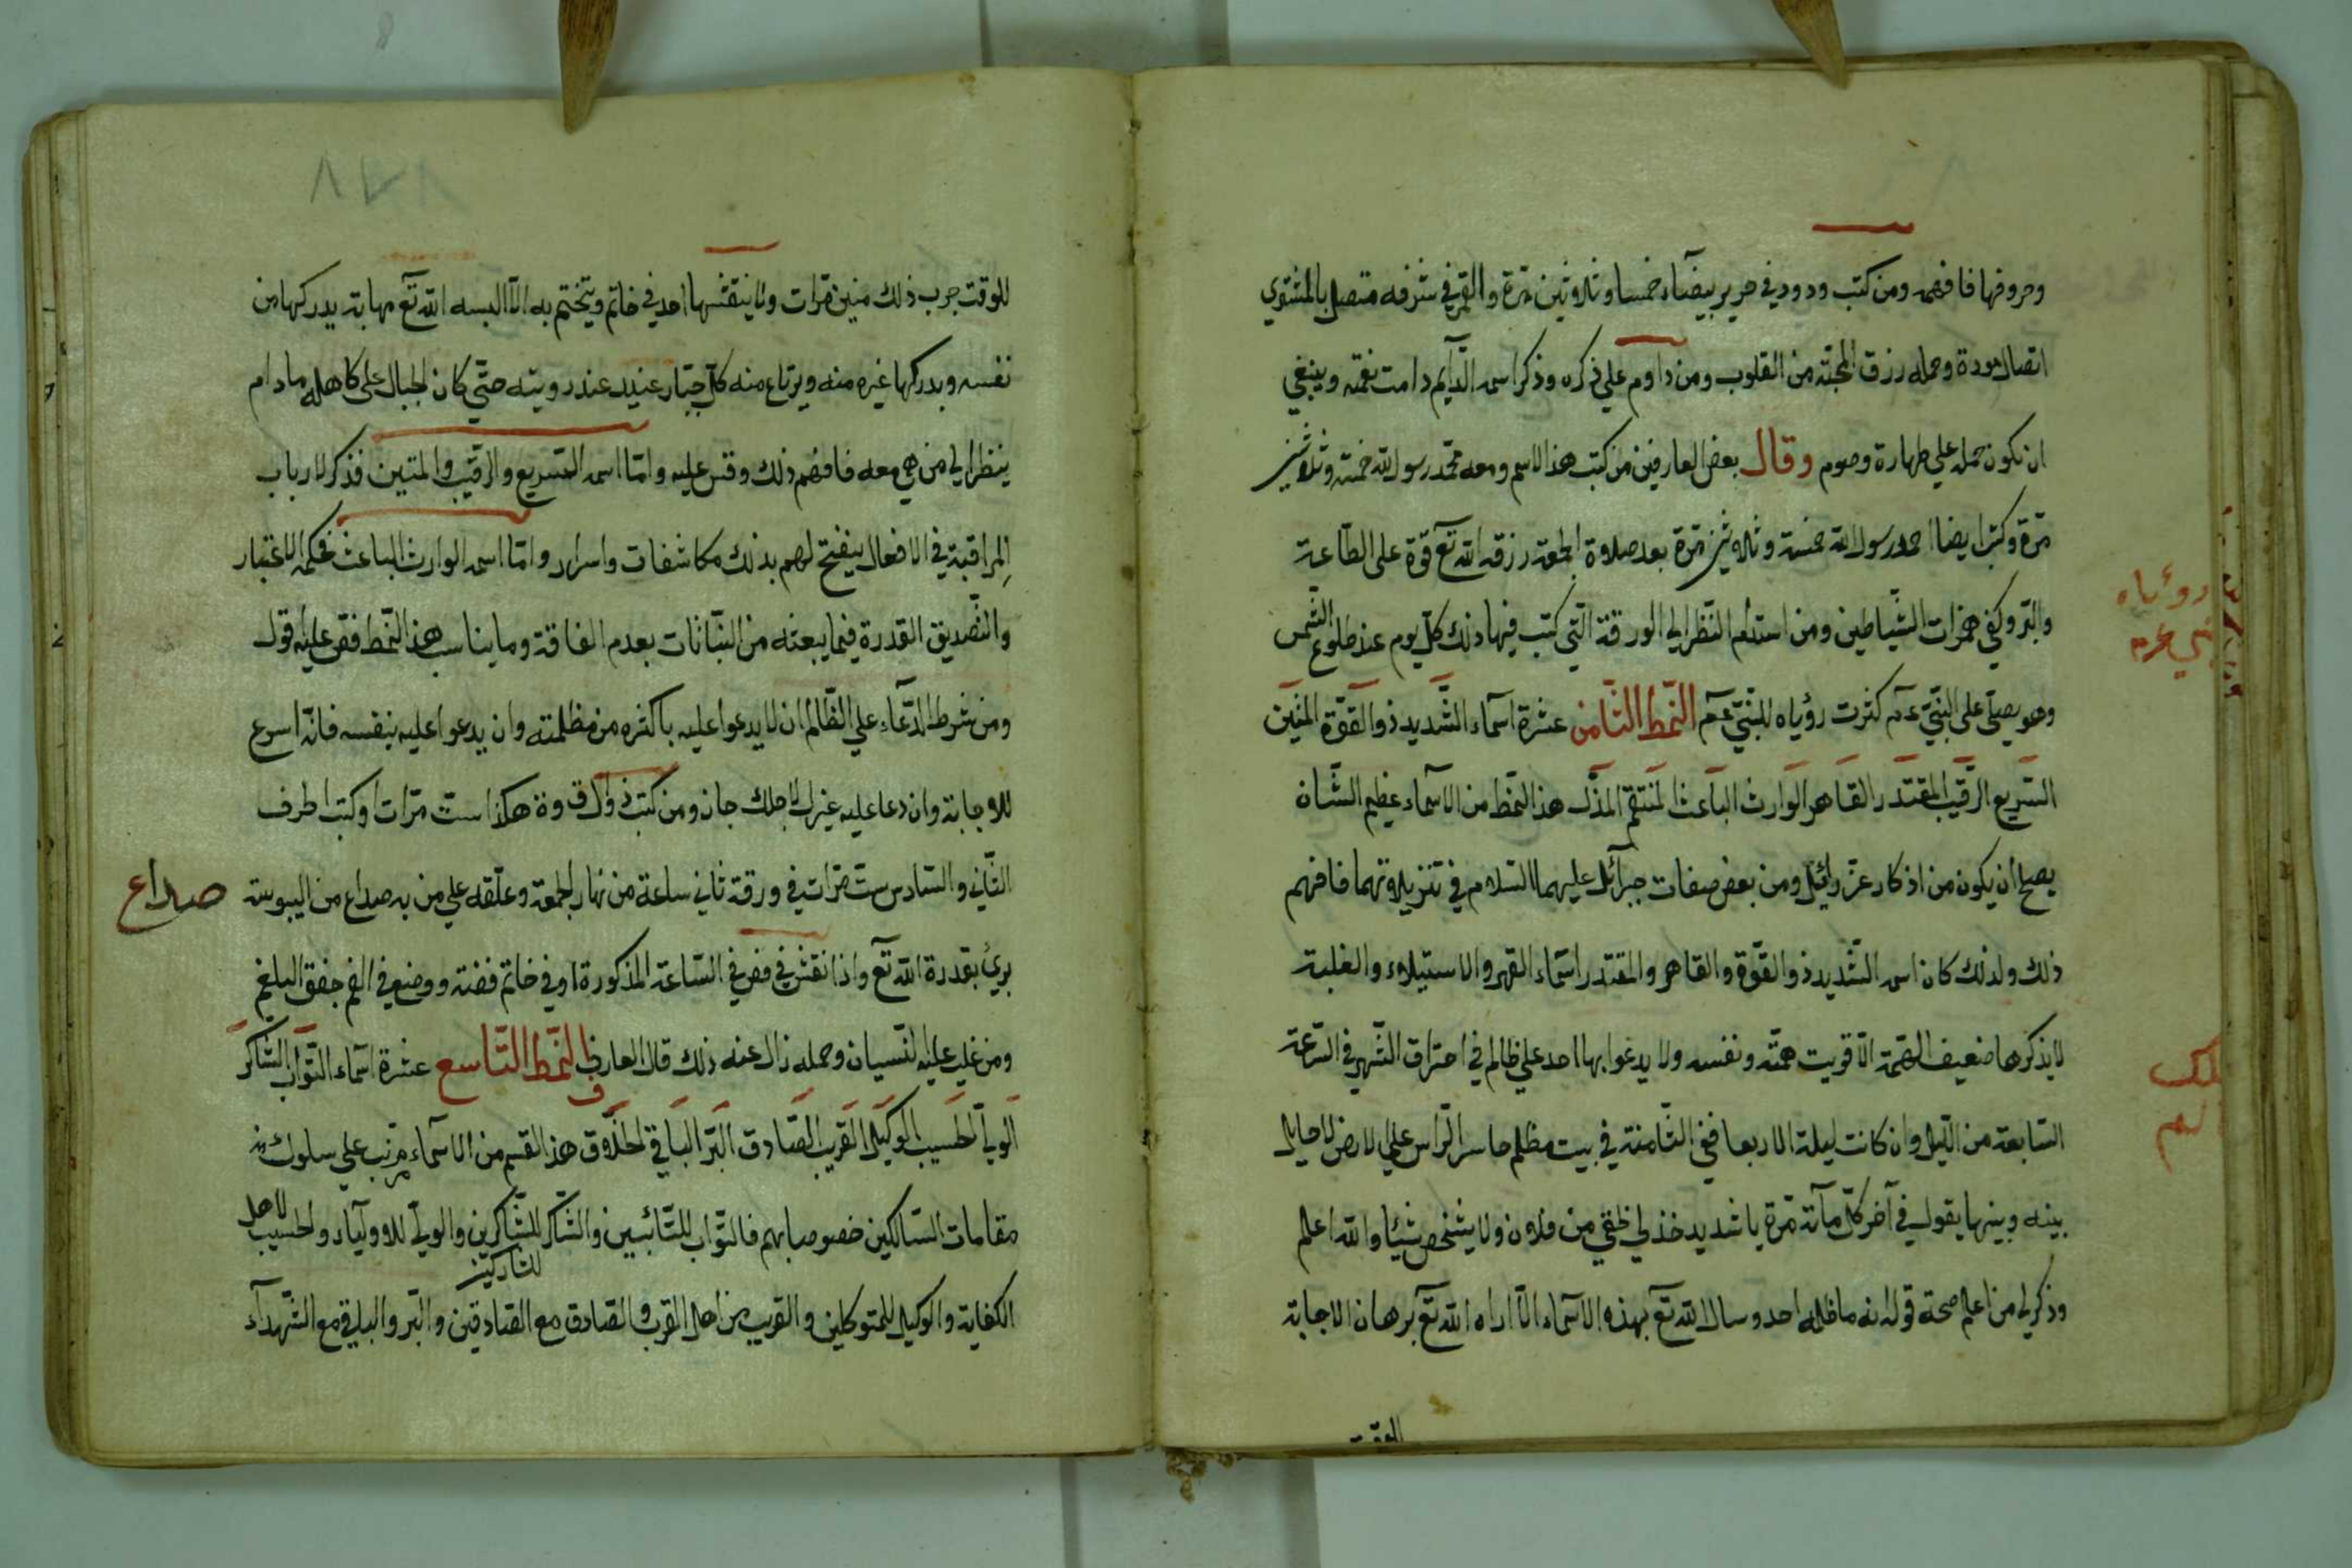 وحروفها فافهم ومن كتب ودود في حرير بيضاء خمسا وثلاثين مرة والقمر في شرفه متصل بالمشتري
اتصال مودة وحمله رزق المحبّة من القلوب ومن داوم علي ذكره وذكر اسمه الدّايم دامت نعمته وينبغي
ان تكون حمله علي طهارة وصوم وقال بعض العارفين من كتب هذا الاسم ومعه محمّد رسول الله خمسة وثلاثين
مرّة وكتب ايضا احمد رسول الله خمسة وثلاثين مرّة بعد صلاوة الجمعة رزقه الله تع قوّة علي الطّاعة
والبرّ وكفي همزات الشّياطين ومن استدام النّظر الي الورقة الّتي كتب فيها ذلك كلّ يوم عند طلوع الشّمس
وهو يصلّي علي النبيّ عم كثرت رؤياه للنبيّ عم النّمط الثّامن عشرة اسمآء الشّديد ذو القوّة المتين
السّريع الرّقيب المقتدر القاهر الوارث الباعث المنتقم المذلّ هذا النّمط من الاسمآء عظيم الشّان
يصلح ان يكون من اذكار عزرائيل ومن بعض صفات جبرآئل عليهما السّلام في تنزيلاتهما فافهم
ذلك ولذلك كان اسمه الشّديد ذو القوّة والقاهر والمقتدر اسمآء القهر والاستيلاء والغلبة
لا يذكرها ضعيف الهمّة الّا قويت همّته ونفسه ولا يدعوا بها احد علي ظالم في احتراق الشّهر في السّاعة
السّابعة من اللّيل وان كانت ليلة الاربعا ففي الثّامنة في بيت مظلم حاسر الرّاس علي الارض لا حايل
بينه وبينها يقول في آخر كلّ مآئة مرّة يا شديد خذ لي حقّي من فلان ولا يشخص شيئا والله اعلم
وذكر لي من اعلم صحة قوله انه ما ظلمه احد وسال الله تع بهذه الاسمآء الّا اراه الله تع برهان الاجابة
رؤياه
للوقت جرب ذلك منين مرّات ولا ينقشها احد في خاتم ويتختم به الّا البسه الله تع مهابة يدركها من
نفسه ويدركها غيره منه ويرتاع منه كلّ جبّار عنيد عند رويته حتّي كان الجبال علي كاهله ما دام
ينظر الي من هي معه فافهم ذلك وقس عليه وامّا اسمه السّريع والرقيب والمتين فذكر لارباب
المراقبة في الافعال ينفتح لهم بذلك مكاشفات واسرار وامّا اسمه الوارث الباعث فحكمه الاعتبار
والتّصديق القدرة فيما يبعثه من النباتات بعدم الفاقة وما يناسب هذا النّمط فقس عليه قوله
ومن شرط الدّعاء علي الظّالم ان لا يدعوا عليه باكثره من مظلمته وان يدعوا عليه بنفسه فانّه اسرع
للاجابة وان دعا عليه غيرك لاجلك جاز ومن كتب ذوال ق وة هكذا ستّ مرّات او كتب اطرف
الثّاني والسّادس ستّ مرّات في ورقة ثاني ساعة من نهار الجمعة وعلّقه علي من به صداع من اليبوسة
صداع
بريء بقدرة الله تع واذا نقش في فص في السّاعة المذكورة او في خاتم فضة ووضع في الفم جفف البلغم
ومن غلب عليه النّسيان وحمله زال عنه ذلك قال العارف النّمط التّاسع عشرة اسمآء التّوّاب الشّاكر
الوليّ الحسيب الوكيل القريب الصّادق البرّ الباقي الخلّاق هذا القسم من الاسمآء مرتّب علي سلوك
مقامات السّالكين خصوصا بهم فالتّوّاب للتّائبين والشّاكر للشّاكرين والوليّ للاوليآء والحسيب لاهل
الكفاية والوكيل للمتوكلين والقريب من اهل القرب والصّادق مع الصّادقين والبرّ والباقي مع الشّهدآء